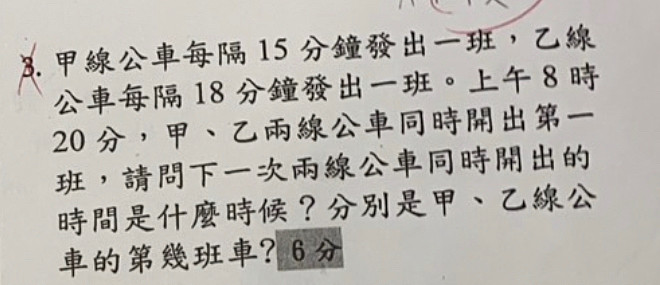 3. 甲線公車每隔 15 分鐘發出一班，乙線
公車每隔 18 分鐘發出一班。上午 8 時
20 分，甲、乙兩線公車同時開出第一
班，請問下一次兩線公車同時開出的
時間是什麼時候？分別是甲、乙線公
車的第幾班車? 6 分